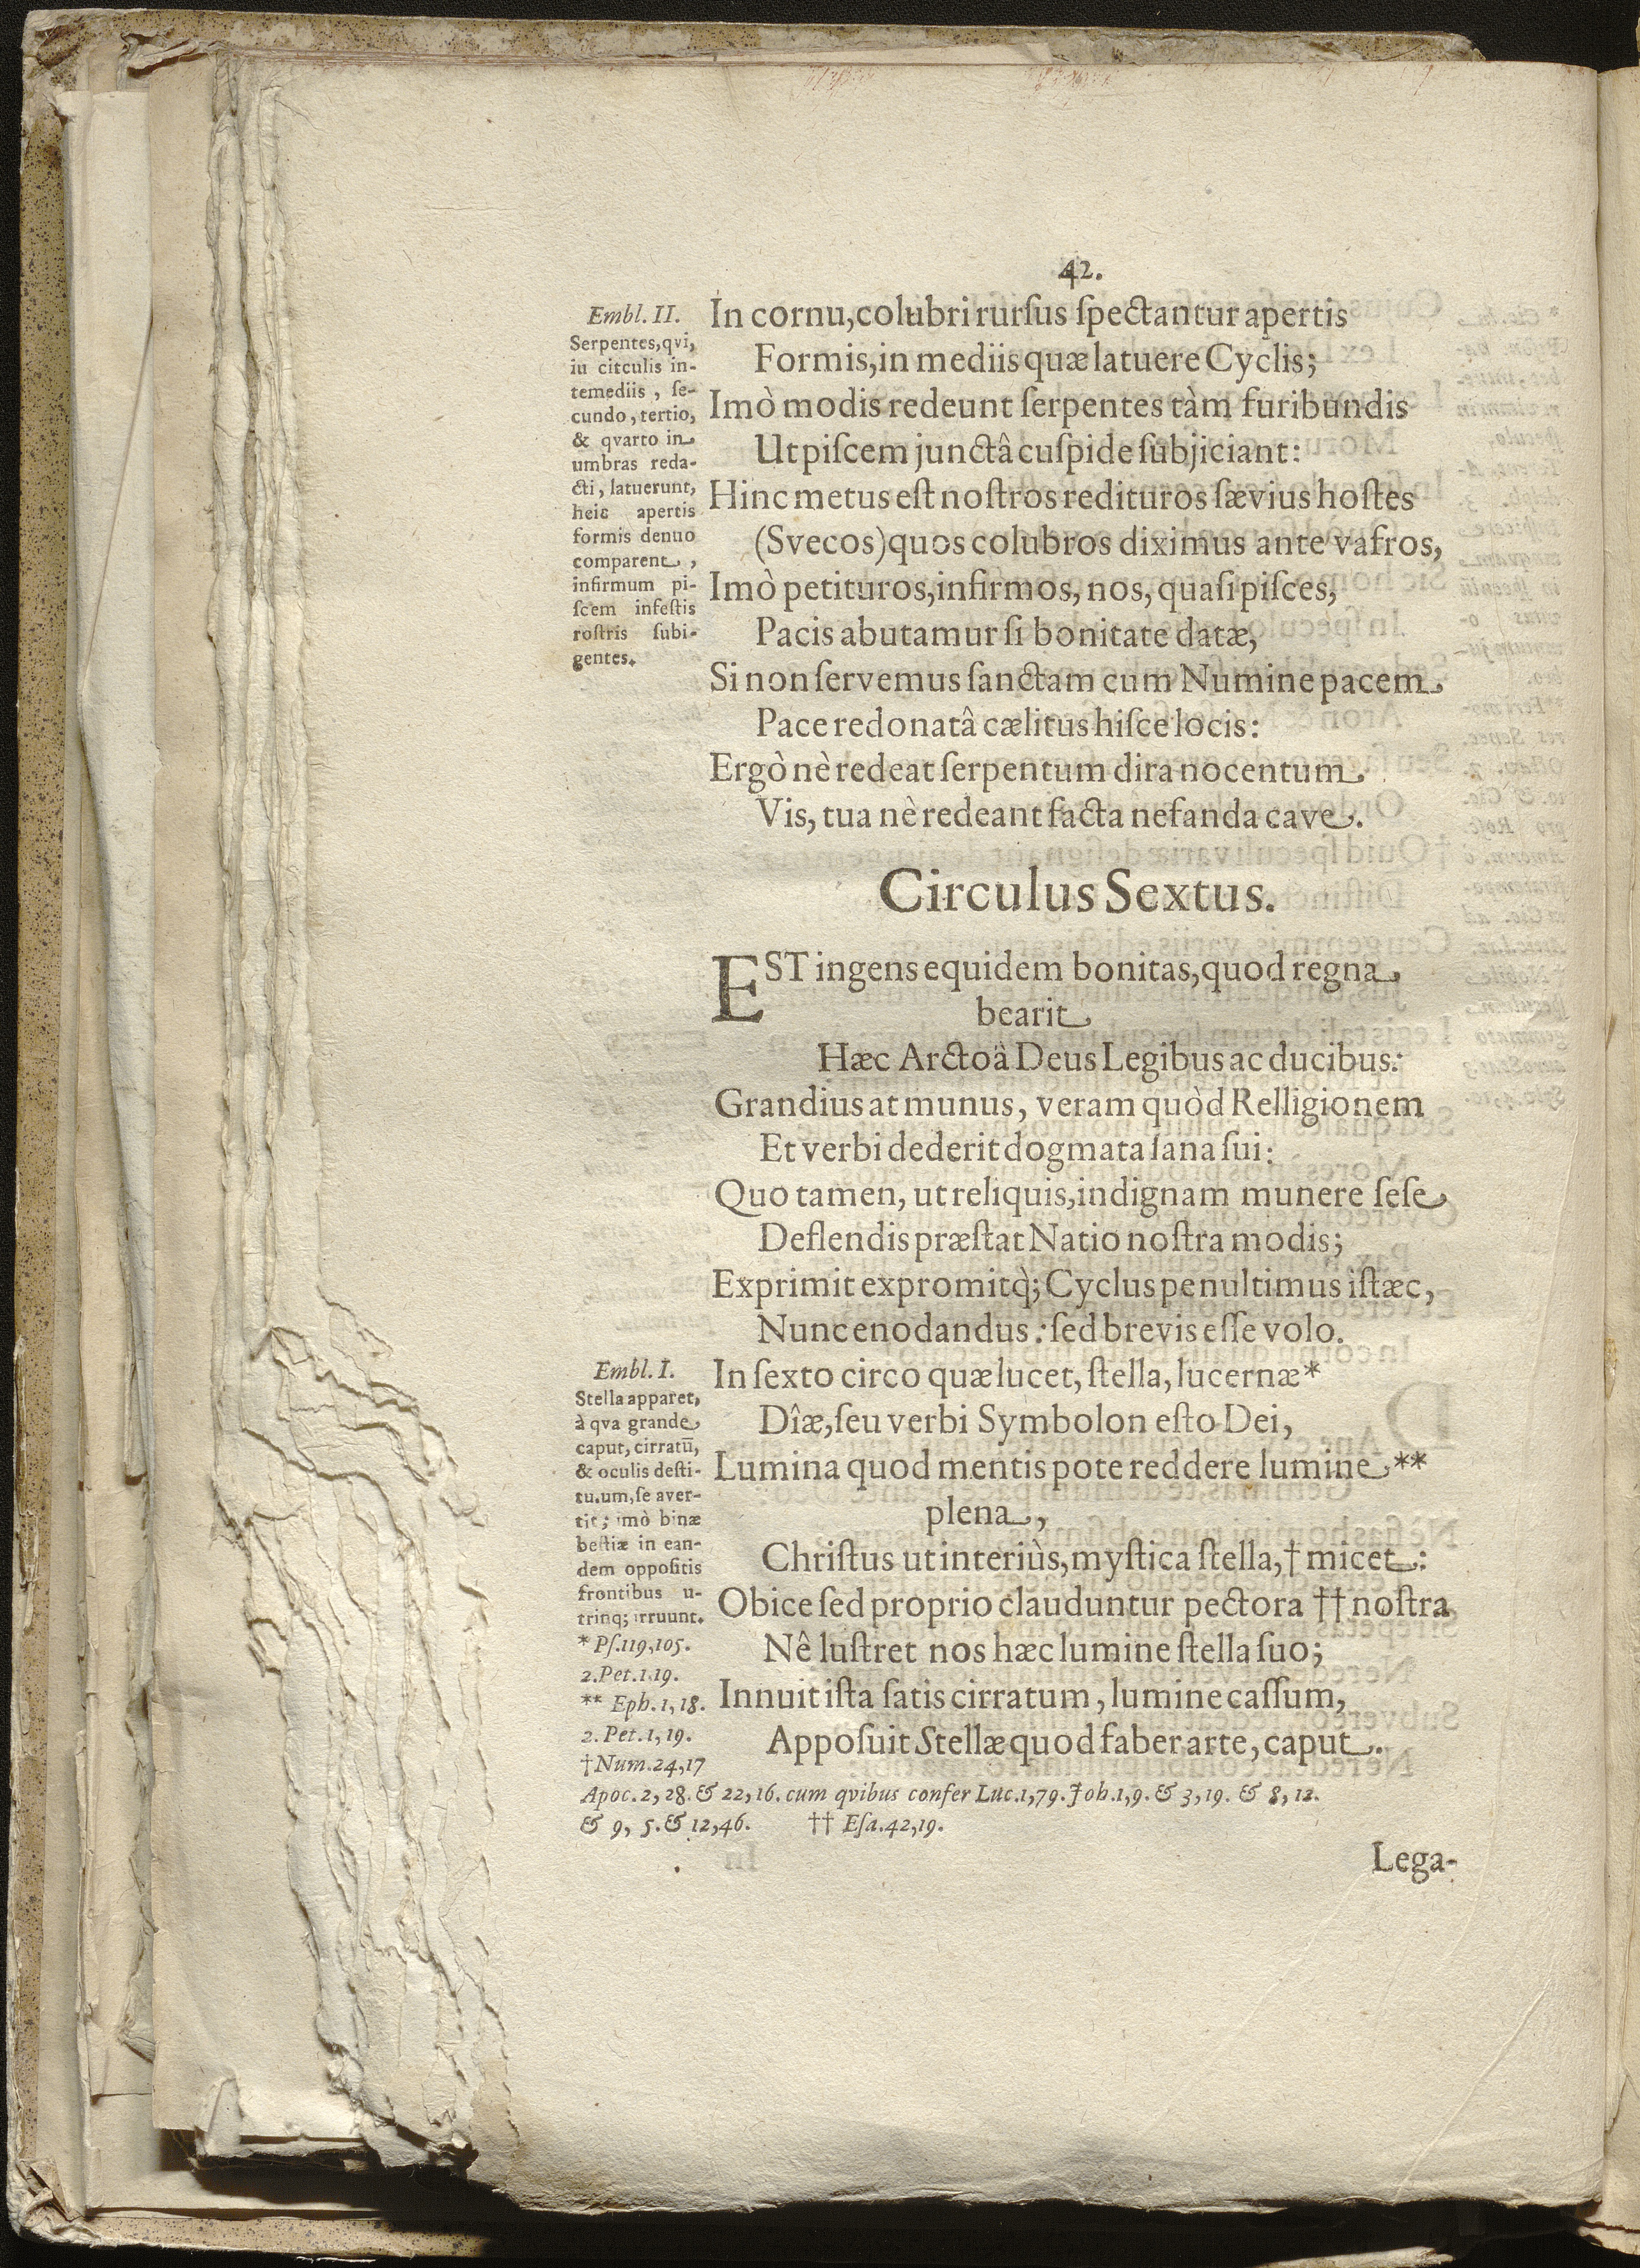 42.
Embl. II.
Serpentes, qvi,
iu citculis in-
temediis, ſe-
cundo, tertio,
& qvarto in
umbras reda-
cti, latuerunt,
heic apertis
formis denuo
comparent,
infirmum pi-
ſcem infeſtis
roſtris ſubi-
gentes.
In cornu, colubri rurſus ſpectantur apertis
Formis, in mediis quæ latuere Cyclis;
Imò modis redeunt ſerpentes tàm furibundis
Ut piſcem junctâ cuſpide ſubjiciant:
Hinc metus eſt noſtros redituros ſævius hoſtes
(Svecos) quos colubros diximus ante vafros,
Imò petituros, infirmos, nos, quaſi piſces,
Pacis abutamur ſi bonitate datæ,
Si non ſervemus ſanctam cum Numine pacem
Pace redonatâ cælitus hiſce locis:
Ergò nè redeat ſerpentum dira nocentum
Vis, tua nè redeant facta nefanda cave.
Circulus Sextus.
EST ingens equidem bonitas, quod regna
bearit
Hæc Arctoâ Deus Legibus ac ducibus:
Grandius at munus, veram quòd Relligionem
Et verbi dederit dogmata ſana ſui:
Quo tamen, ut reliquis, indignam munere ſeſe
Deflendis præſtat Natio noſtra modis;
Exprimit expromitq̀; Cyclus penultimus iſtæc,
Nunc enodandus: ſed brevis eſſe volo.
Embl. I.
Stella apparet,
à qva grande
caput, cirratū,
& oculis deſti-
tu.um, ſe aver-
tit; imò binæ
beſtiæ in ean-
dem oppoſitis
frontibus u-
trinq; irruunt.
* Pſ. 119, 105.
2. Pet. 1. 19.
** Eph. 1, 18.
2. Pet. 1, 19.
† Num. 24, 17
In ſexto circo quæ lucet, ſtella, lucernæ*
Dîæ, ſeu verbi Symbolon eſto Dei,
Lumina quod mentis pote reddere lumine **
plena,
Chriſtus ut interiùs, myſtica ſtella, † micet:
Obice ſed proprio clauduntur pectora †† noſtra
Nê luſtret nos hæc lumine ſtella ſuo;
Innuit iſta ſatis cirratum, lumine caſſum,
Appoſuit Stellæ quod faber arte, caput.
Apoc. 2, 28. & 22, 16. cum qvibus confer Luc. 1, 79. Joh. 1, 9. & 3, 19. & 8, 12.
& 9, 5. & 12, 46. †† Eſa. 42, 19.
Lega-